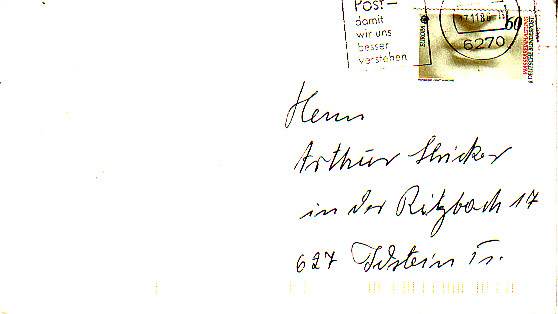 Post-
damit
wir uns
besser
verstehen
17.11.86
6270
60
EUROPA
DEUTSCHE BUNDESPOST
Herrn
Arthur Stricker
in der Ritzbach 17
627 Idstein Ts.